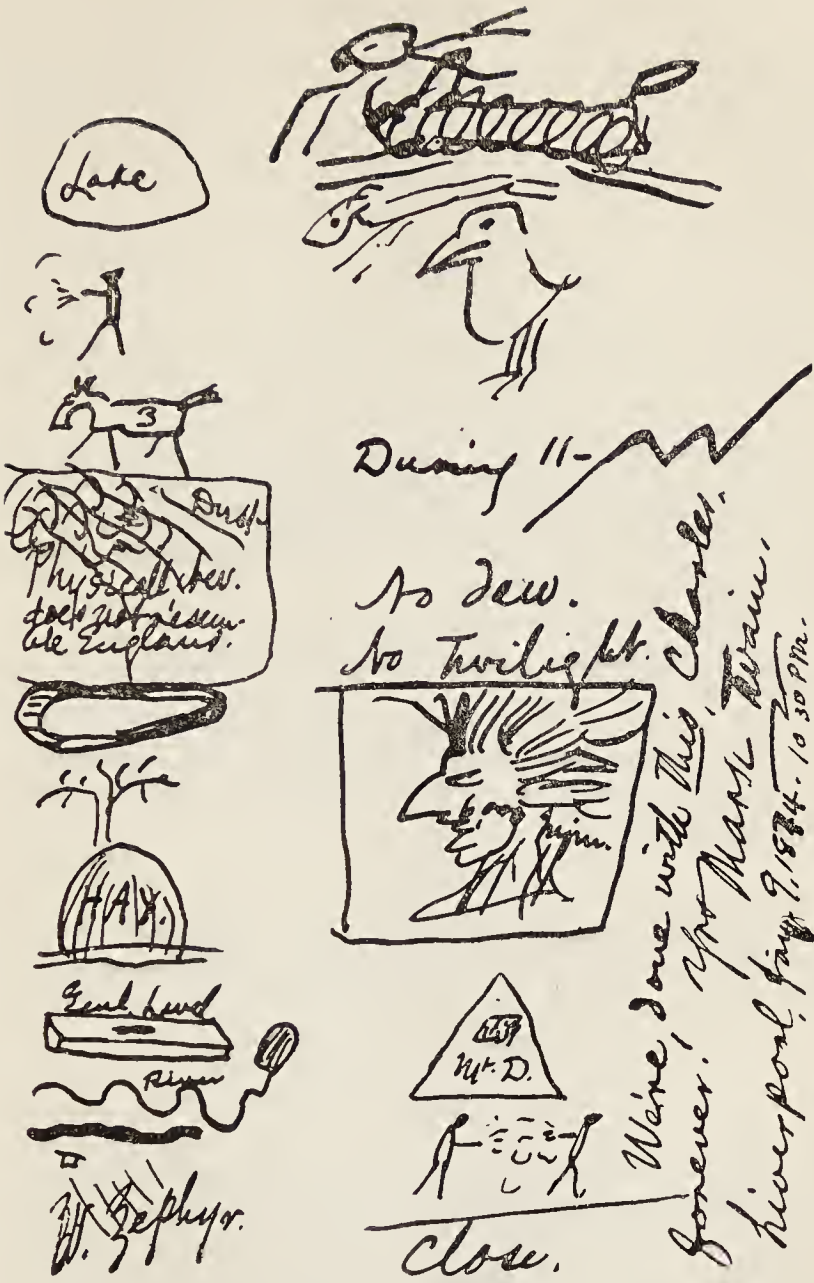 Lake
3
Dust
Physical
does not resem-
ble England.
HAY.
Genl. Level
River
W. Zephyr.
During 11-
No dew.
No Twilight.
Mt. D.
Close.
We're done with this, Charles,
forever! Yrs Mark Twain.
Liverpool, Jany 9. 1874. 10 30 PM.